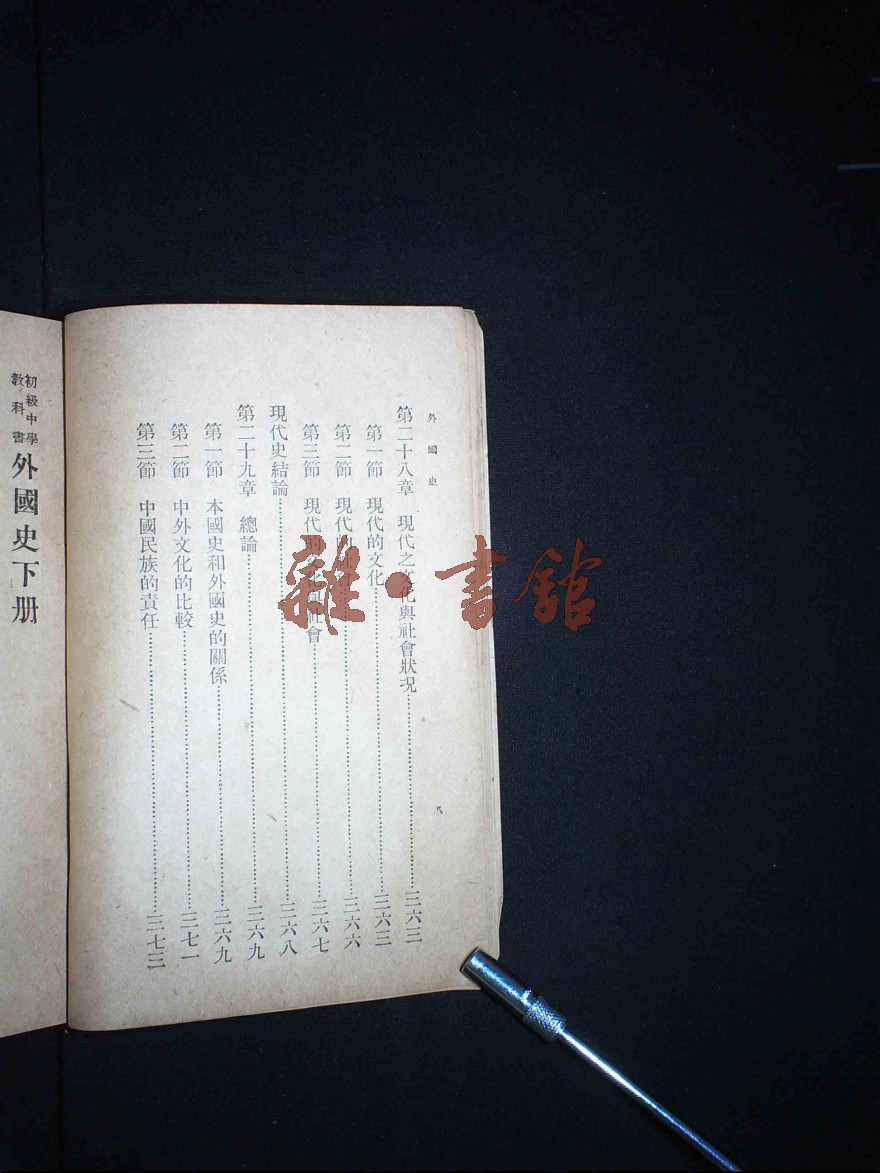 外國史
第二十八章　現代之文化與社會狀況………三六三
第一節　現代的文化………三六三
第二節　現代的社會………三六六
第三節　現代的文化與社會………三六七
現代史結論………三六八
第二十九章　總論………三六九
第一節　本國史和外國史的關係………三六九
第二節　中外文化的比較………三七一
第三節　中國民族的責任………三七三
八
初級中學
教科書
外國史下册
雜·書館